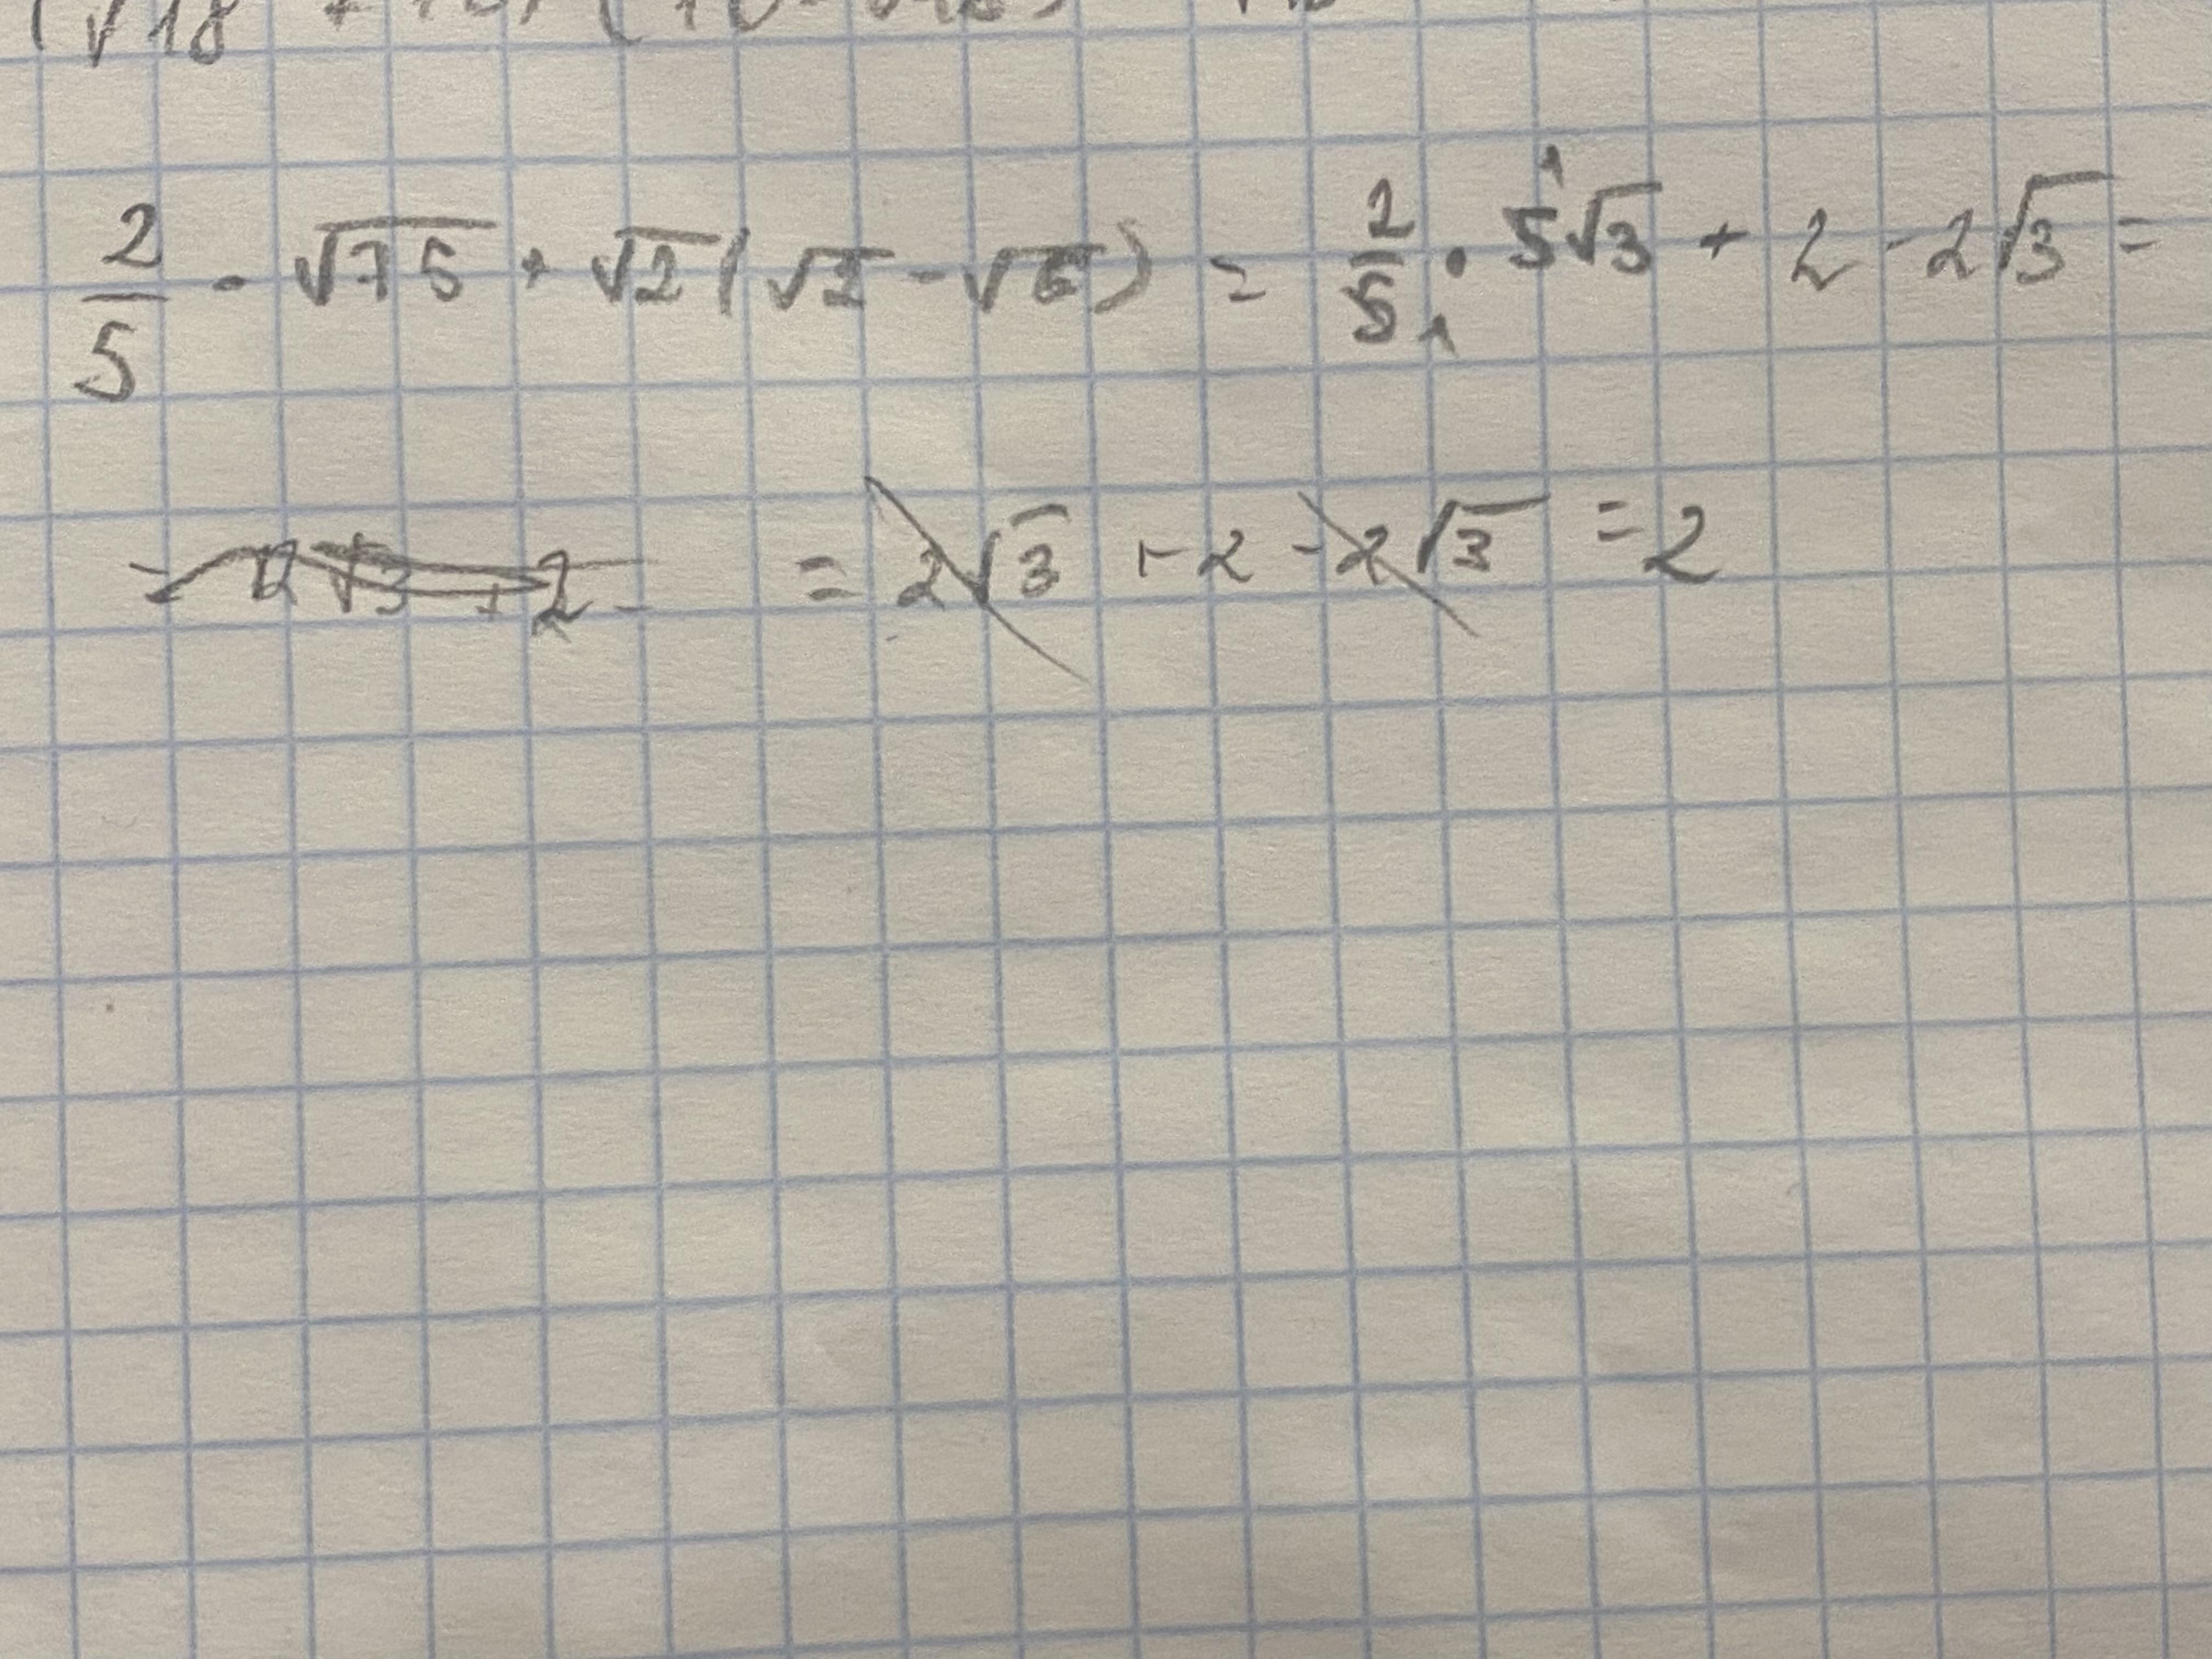 2/5 · √75 + √2(√2 - √6) = 2/5 · 5√3 + 2 - 2√3 =
= 2√3 + 2 - 2√3 = 2